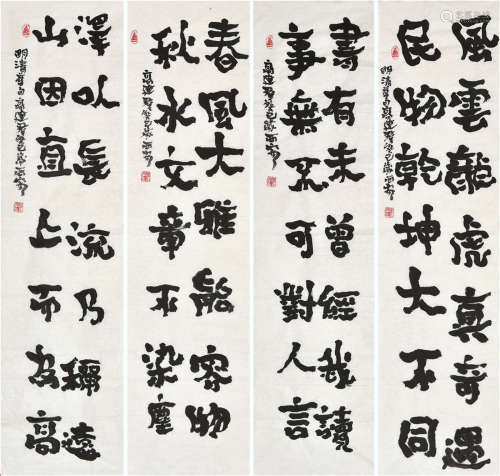 風雲龍虎真奇遇
民物乾坤大不同
書有未曾經我讀
事無不可對人言
春風大雅能容物
秋水文章不染塵
澤以長流乃稱遠
山因直上而為高